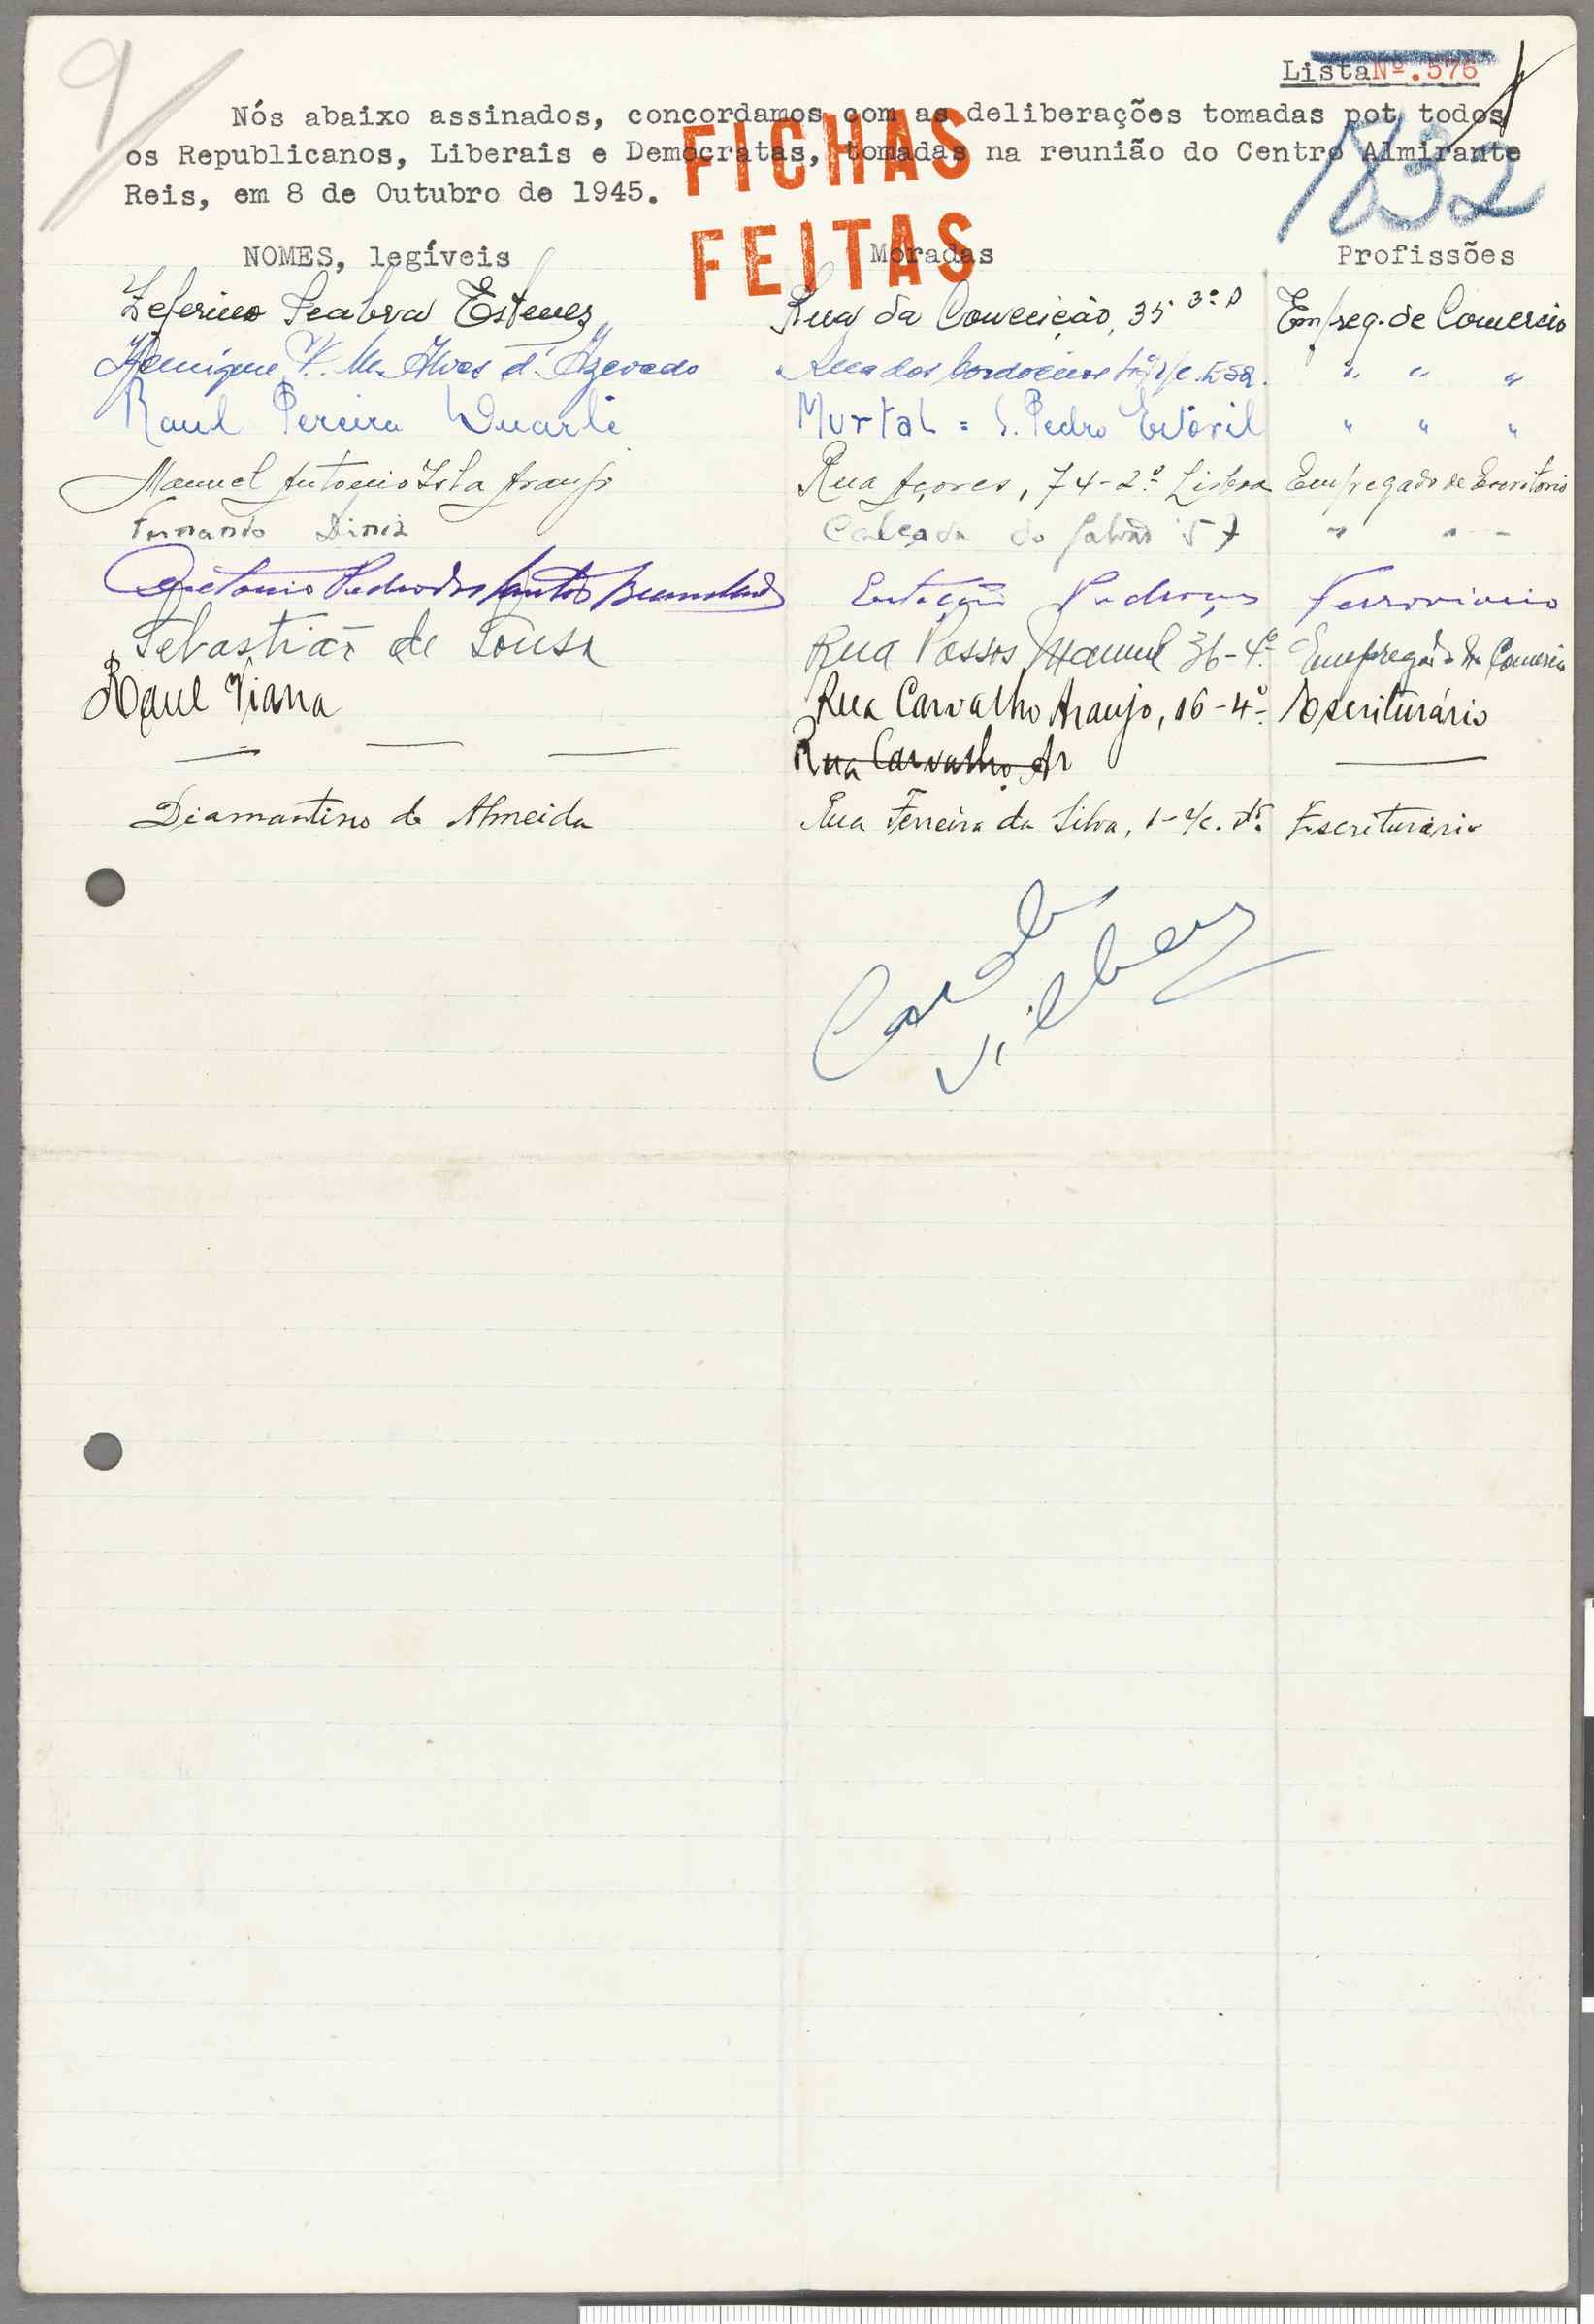 9
Lista Nº.576
Nós abaixo assinados, concordamos com as deliberações tomadas pot todos
os Republicanos, Liberais e Democratas, tomadas na reunião do Centro Almirante
Reis, em 8 de Outubro de 1945.
FICHAS
FEITAS
1832
NOMES, legíveis Moradas Profissões
Zeferino Seabra Esteves Rua da Conceição, 35 3º D Empreg. de Comercio
Henrique V. M. Alves d'Azevedo Rua dos " " "
Raul Pereira Duarte Murtal = S. Pedro Estoril " " "
Manuel Antonio Araujo Rua Açores, 74-2º Lisboa Empregado de Escritorio
Fernando Diniz Calçada do Galvão 57 " " "
Antonio Pedro dos Santos Estação Ferroviario
Sebastião de Sousa Rua Passos Manuel 36-4º Empregado de Comercio
Raul Viana Rua Carvalho Araujo, 16-4º Escriturário
Rua Carvalho Ar
Diamantino de Almeida Rua Ferreira da Silva, 1-r/c. dº. Escriturário